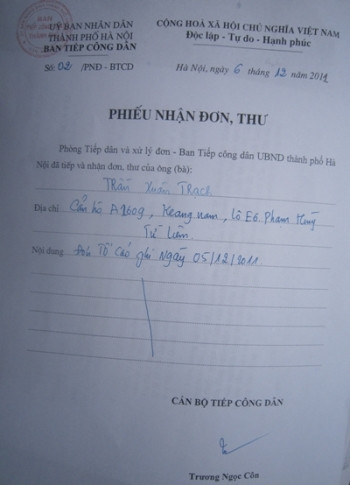 UỶ BAN NHÂN DÂN
THÀNH PHỐ HÀ NỘI
BAN TIẾP CÔNG DÂN
Số: 02 /PNĐ - BTCD
CỘNG HOÀ XÃ HỘI CHỦ NGHĨA VIỆT NAM
Độc lập - Tự do - Hạnh phúc
Hà Nội, ngày 6 tháng 12 năm 2011
PHIẾU NHẬN ĐƠN, THƯ
Phòng Tiếp dân và xử lý đơn - Ban Tiếp công dân UBND thành phố Hà
Nội đã tiếp và nhận đơn, thư của ông (bà):
Trần Xuân Trạch
Địa chỉ: Căn hộ A1609, Keangnam, lô E6 Phạm Hùng
Từ Liêm
Nội dung Tố Cáo ghi Ngày 05/12/2011
CÁN BỘ TIẾP CÔNG DÂN
Trương Ngọc Côn